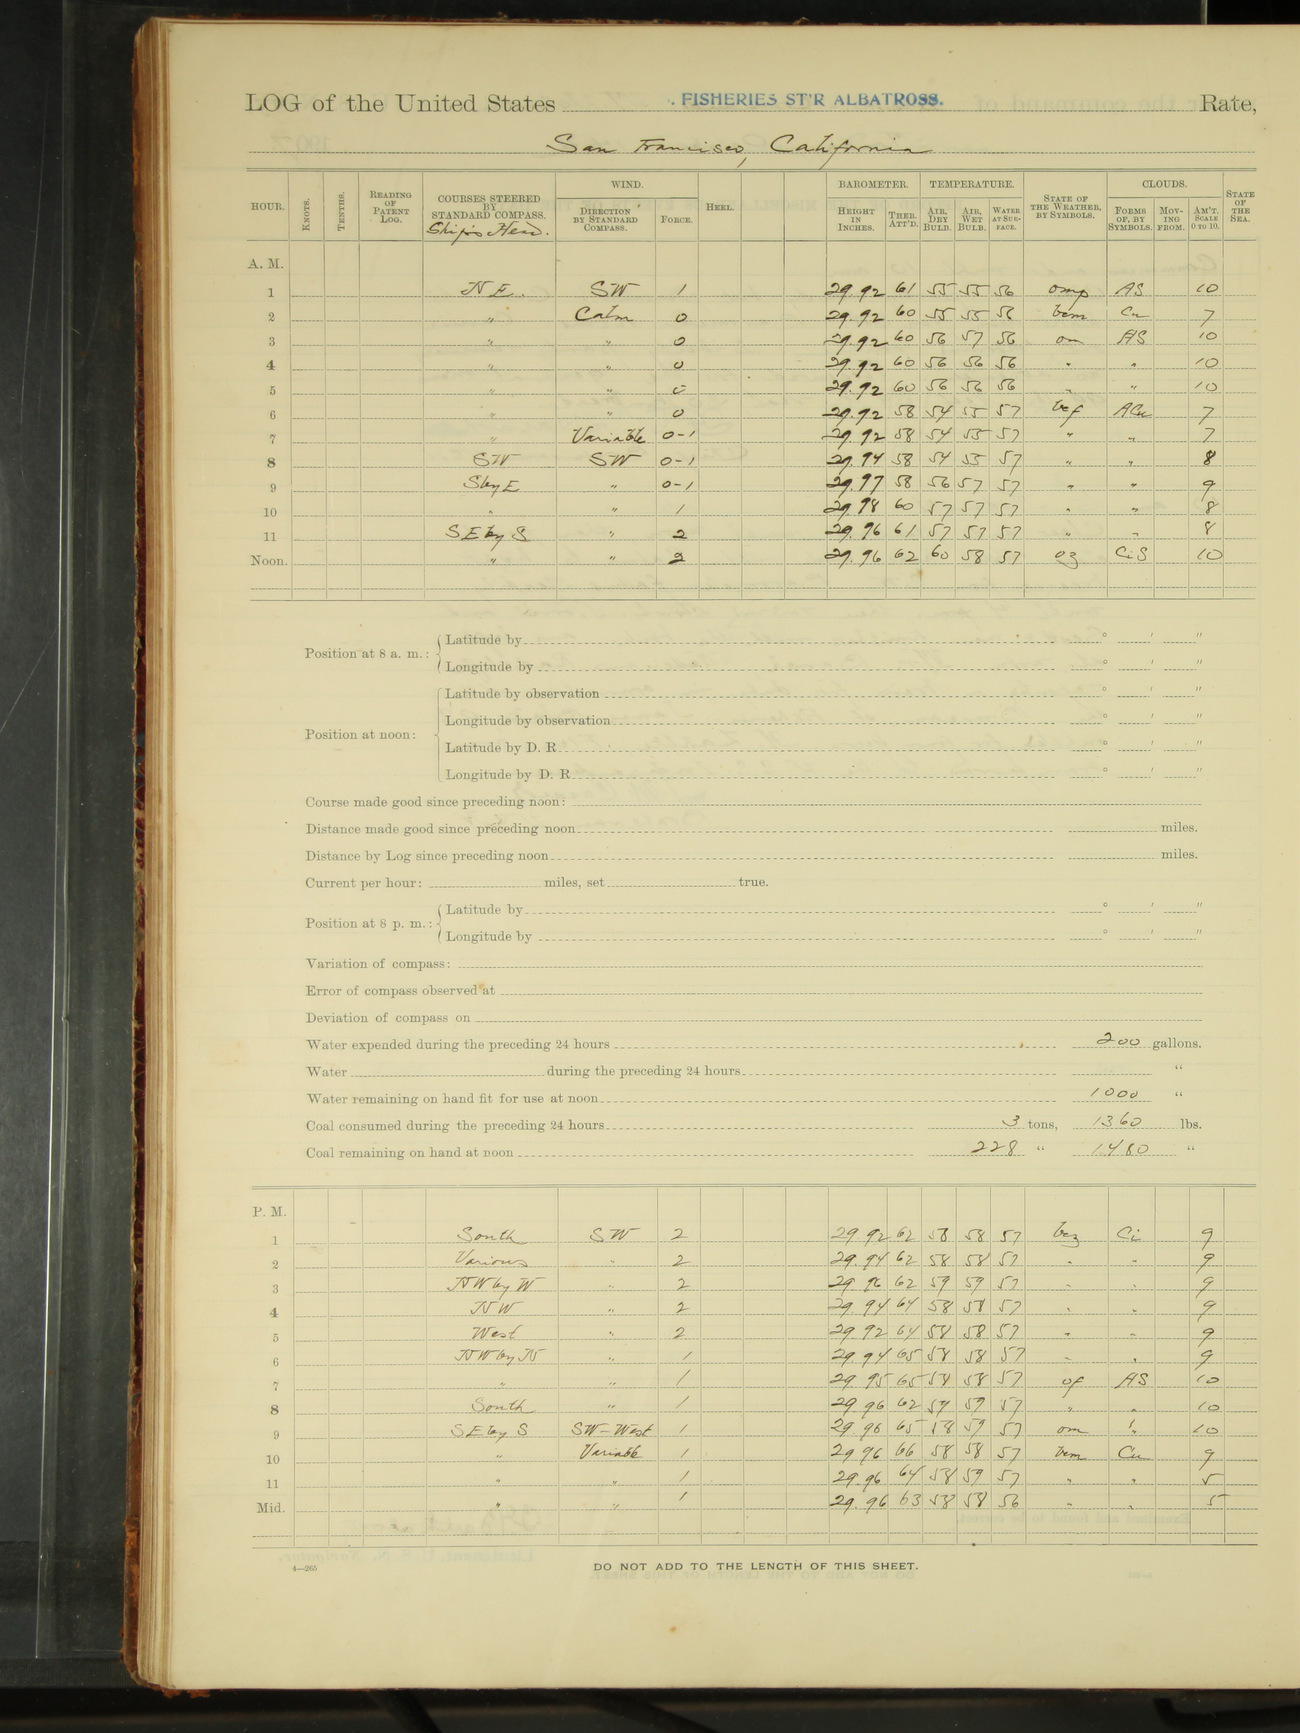 LOG of the United States FISHERIES ST'R ALBATROSS. Rate,
San Francisco, California
HOUR. KNOTS. TENTHS. READING OF PATENT LOG. COURSES STEERED BY STANDARD COMPASS. Ship's Head. WIND. DIRECTION BY STANDARD COMPASS. FORCE. HEEL. BAROMETER. HEIGHT IN INCHES. THER. ATT'D. TEMPERATURE. AIR, DRY BULB. AIR, WET BULB. WATER AT SURFACE. STATE OF THE WEATHER, BY SYMBOLS. CLOUDS. FORMS OF, BY SYMBOLS. MOVING FROM. AM'T, SCALE 0 TO 10. STATE OF THE SEA.
A. M.
1 NE. SW 1 29.92 61 55 55 56 omp AS 10
2 " Calm 0 29.92 60 55 55 56 bcm Cu 7
3 " " 0 29.92 60 56 57 56 om AS 10
4 " " 0 29.92 60 56 56 56 " " 10
5 " " 0 29.92 60 56 56 56 " " 10
6 " " 0 29.92 58 54 55 57 bcf ACu 7
7 " Variable 0-1 29.92 58 54 55 57 " " 7
8 SW SW 0-1 29.94 58 54 55 57 " " 8
9 SbyE " 0-1 29.97 58 56 57 57 " " 9
10 " " 1 29.98 60 57 57 57 " " 8
11 SEbyS " 2 29.96 61 57 57 57 " " 8
Noon. " " 2 29.96 62 60 58 57 oz CiS 10
Position at 8 a. m.: Latitude by ° ' "
Longitude by ° ' "
Position at noon: Latitude by observation ° ' "
Longitude by observation ° ' "
Latitude by D. R. ° ' "
Longitude by D. R. ° ' "
Course made good since preceding noon:
Distance made good since preceding noon miles.
Distance by Log since preceding noon miles.
Current per hour: miles, set true.
Position at 8 p. m.: Latitude by ° ' "
Longitude by ° ' "
Variation of compass:
Error of compass observed at
Deviation of compass on
Water expended during the preceding 24 hours 200 gallons.
Water during the preceding 24 hours "
Water remaining on hand fit for use at noon 1000 "
Coal consumed during the preceding 24 hours 3 tons, 1360 lbs.
Coal remaining on hand at noon 228 " 1480 "
P. M.
1 South SW 2 29.92 62 58 58 57 bcz Ci 9
2 Various " 2 29.94 62 58 58 57 " " 9
3 NWbyW " 2 29.96 62 59 59 57 " " 9
4 NW " 2 29.94 64 58 58 57 " " 9
5 West " 2 29.92 64 58 58 57 " " 9
6 NWbyN " 1 29.94 65 58 58 57 " " 9
7 " " 1 29.95 65 58 58 57 of AS 10
8 South " 1 29.96 62 59 59 57 " " 10
9 SEbyS SW-West 1 29.96 65 58 59 57 om " 10
10 " Variable 1 29.96 66 58 58 57 bcm Cu 9
11 " " 1 29.96 64 58 59 57 " " 5
Mid. " " 1 29.96 63 58 58 56 " " 5
4—265
DO NOT ADD TO THE LENGTH OF THIS SHEET.